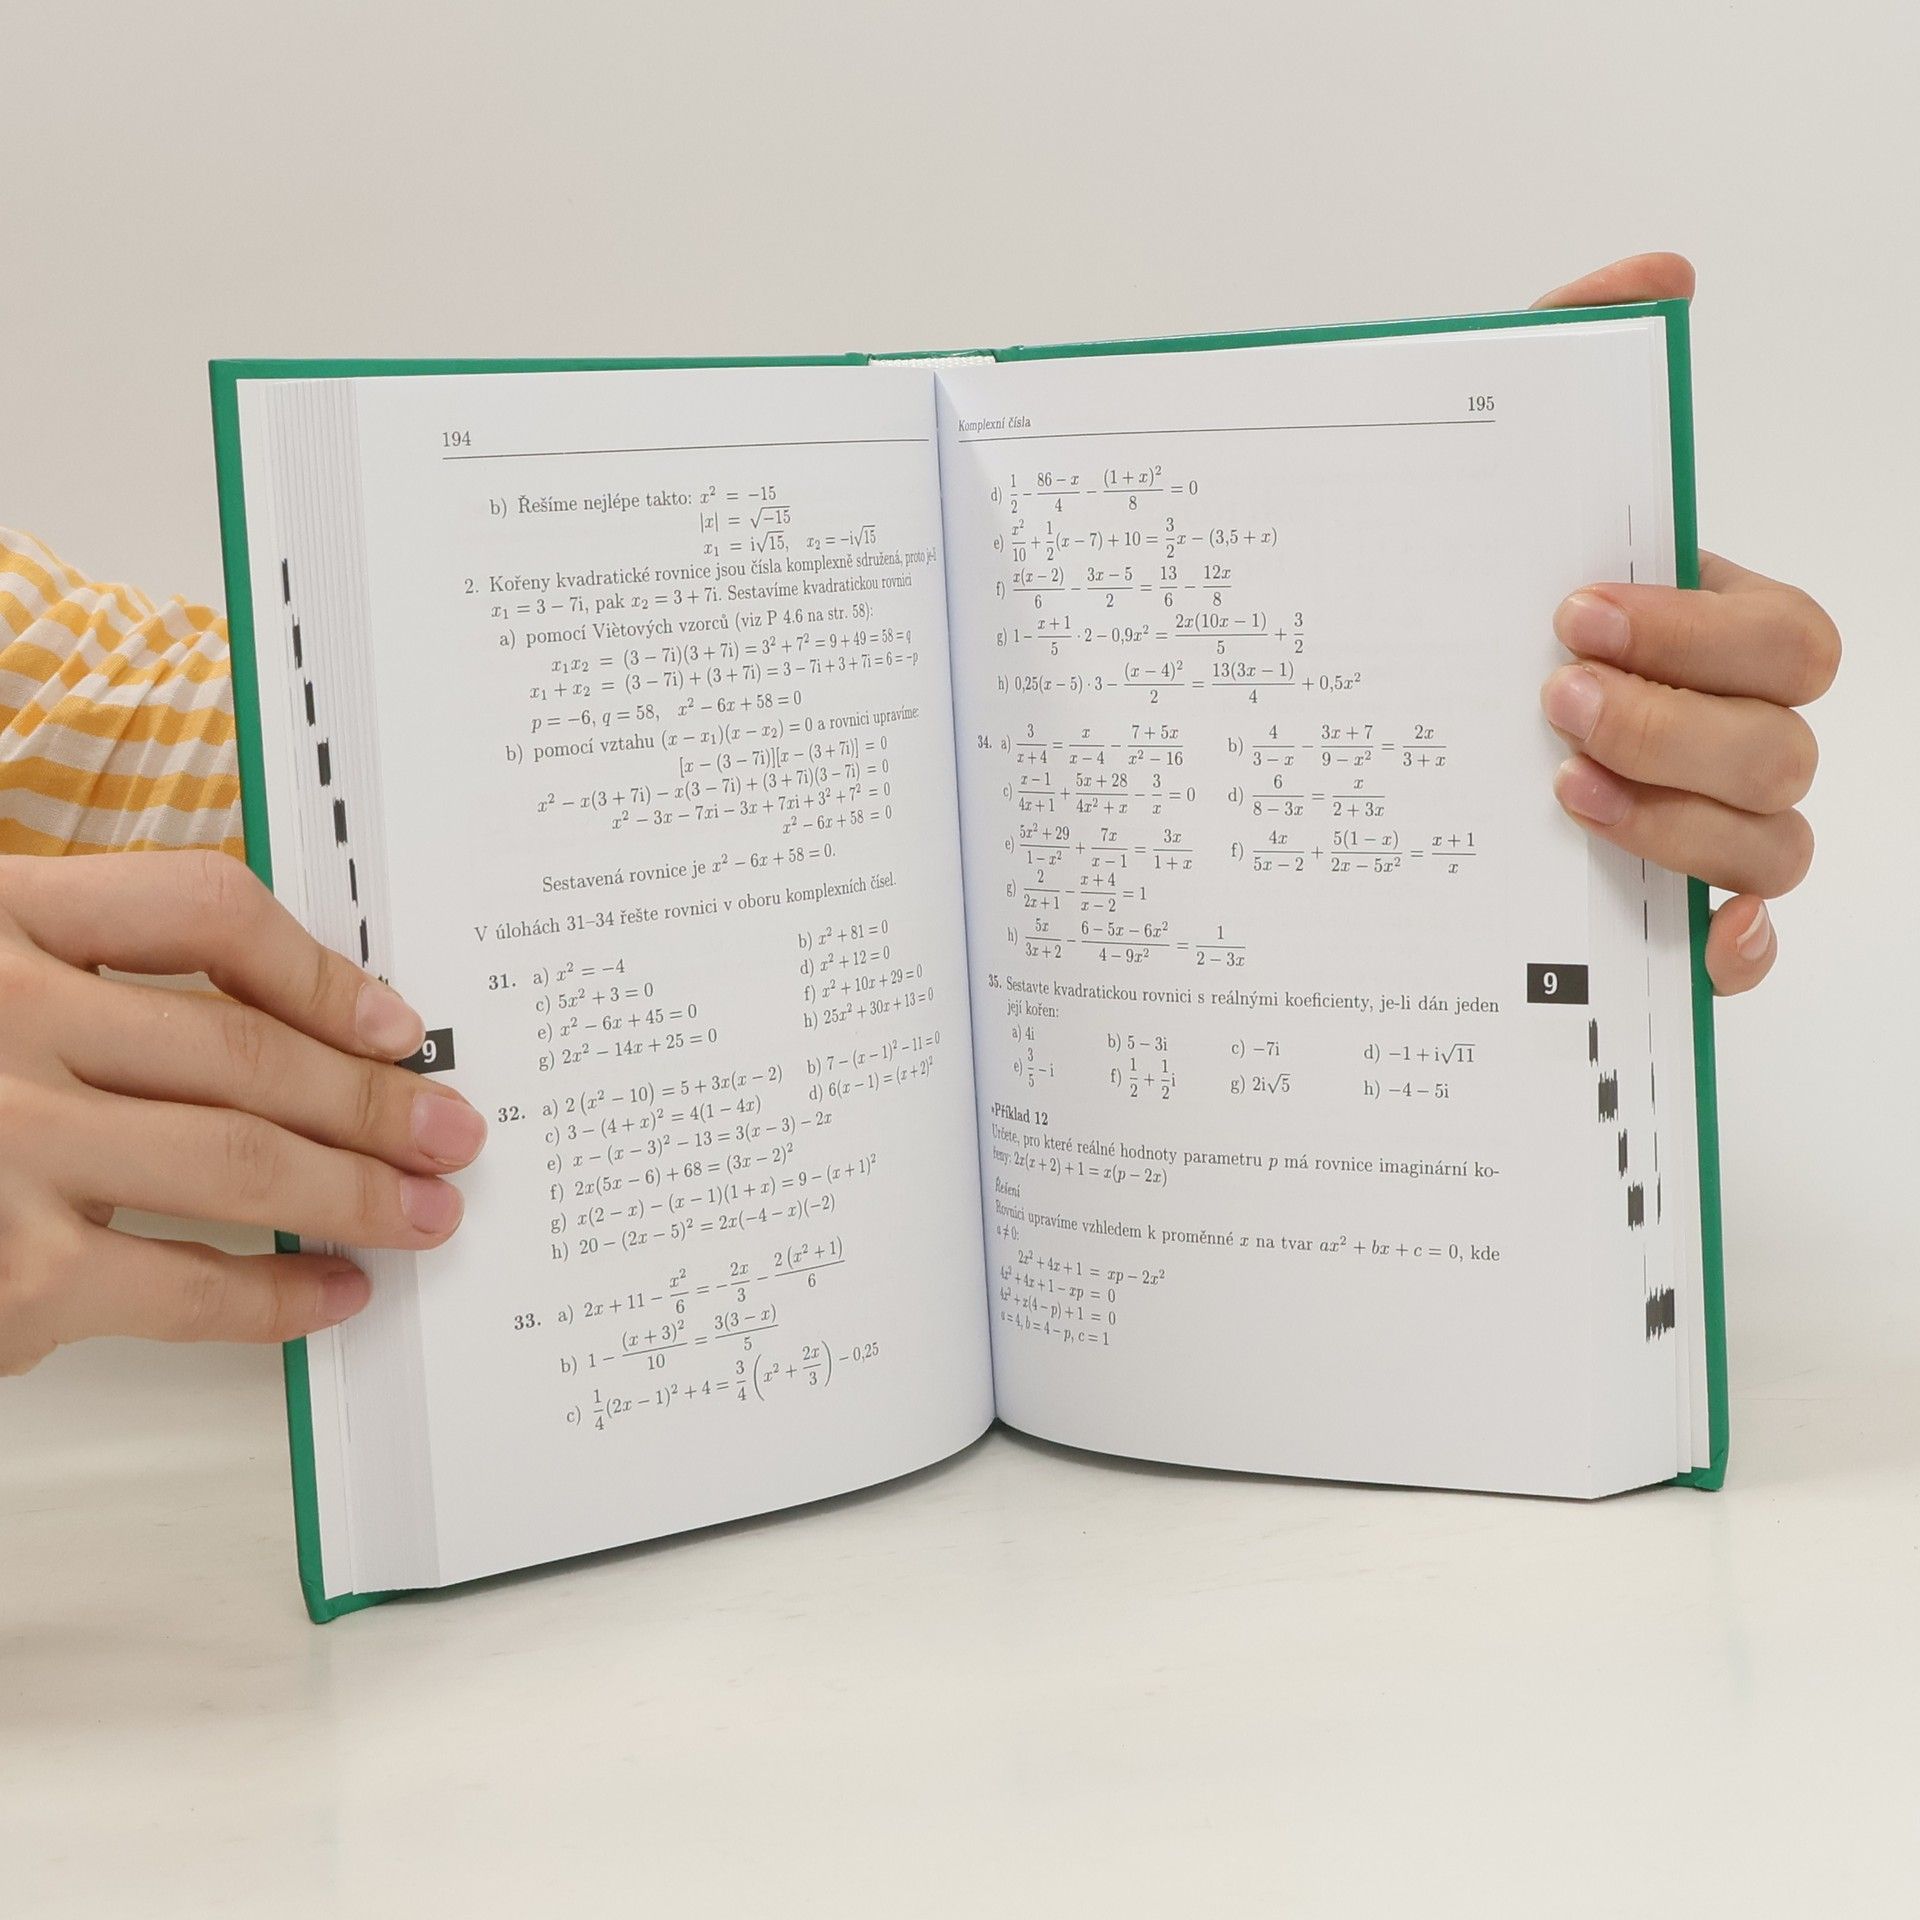 194
b) Řešíme nejlépe takto: x² = −15
|x| = √−15
x₁ = i√15, x₂ = −i√15
2. Kořeny kvadratické rovnice jsou čísla komplexně sdružená, proto je-li
x₁ = 3 − 7i, pak x₂ = 3 + 7i. Sestavíme kvadratickou rovnici
a) pomocí Viètových vzorců (viz P 4.6 na str. 58):
x₁x₂ = (3 − 7i)(3 + 7i) = 3² + 7² = 9 + 49 = 58 = q
x₁ + x₂ = (3 − 7i) + (3 + 7i) = 3 − 7i + 3 + 7i = 6 = −p
p = −6, q = 58, x² − 6x + 58 = 0
b) pomocí vztahu (x − x₁)(x − x₂) = 0 a rovnici upravíme:
[x − (3 − 7i)][x − (3 + 7i)] = 0
x² − x(3 + 7i) − x(3 − 7i) + (3 + 7i)(3 − 7i) = 0
x² − 3x − 7xi − 3x + 7xi + 3² + 7² = 0
x² − 6x + 58 = 0
Sestavená rovnice je x² − 6x + 58 = 0.
V úlohách 31–34 řešte rovnici v oboru komplexních čísel.
31. a) x² = −4 b) x² + 81 = 0
c) 5x² + 3 = 0 d) x² + 12 = 0
e) x² − 6x + 45 = 0 f) x² + 10x + 29 = 0
g) 2x² − 14x + 25 = 0 h) 25x² + 30x + 13 = 0
9
32. a) 2(x² − 10) = 5 + 3x(x − 2) b) 7 − (x − 1)² − 11 = 0
c) 3 − (4 + x)² = 4(1 − 4x) d) 6(x − 1) = (x + 2)²
e) x − (x − 3)² − 13 = 3(x − 3) − 2x
f) 2x(5x − 6) + 68 = (3x − 2)²
g) x(2 − x) − (x − 1)(1 + x) = 9 − (x + 1)²
h) 20 − (2x − 5)² = 2x(−4 − x)(−2)
33. a) 2x + 11 − x²/6 = −2x/3 − 2(x² + 1)/6
b) 1 − (x + 3)²/10 = 3(3 − x)/5
c) 1/4(2x − 1)² + 4 = 3/4(x² + 2x/3) − 0,25
Komplexní čísla 195
d) 1/2 − (86 − x)/4 − (1 + x)²/8 = 0
e) x²/10 + 1/2(x − 7) + 10 = 3/2x − (3,5 + x)
f) x(x − 2)/6 − (3x − 5)/2 = 13/6 − 12x/8
g) 1 − (x + 1)/5 · 2 − 0,9x² = 2x(10x − 1)/5 + 3/2
h) 0,25(x − 5) · 3 − (x − 4)²/2 = 13(3x − 1)/4 + 0,5x²
34. a) 3/(x + 4) = x/(x − 4) − (7 + 5x)/(x² − 16) b) 4/(3 − x) − (3x + 7)/(9 − x²) = 2x/(3 + x)
c) (x − 1)/(4x + 1) + (5x + 28)/(4x² + x) − 3/x = 0 d) 6/(8 − 3x) = x/(2 + 3x)
e) (5x² + 29)/(1 − x²) + 7x/(x − 1) = 3x/(1 + x) f) 4x/(5x − 2) + 5(1 − x)/(2x − 5x²) = (x + 1)/x
g) 2/(2x + 1) − (x + 4)/(x − 2) = 1
h) 5x/(3x + 2) − (6 − 5x − 6x²)/(4 − 9x²) = 1/(2 − 3x)
9
35. Sestavte kvadratickou rovnici s reálnými koeficienty, je-li dán jeden
její kořen:
a) 4i b) 5 − 3i c) −7i d) −1 + i√11
e) 3/5 − i f) 1/2 + 1/2i g) 2i√5 h) −4 − 5i
Příklad 12
Určete, pro které reálné hodnoty parametru p má rovnice imaginární ko-
řeny: 2x(x + 2) + 1 = x(p − 2x)
Řešení
Rovnici upravíme vzhledem k proměnné x na tvar ax² + bx + c = 0, kde
a ≠ 0:
2x² + 4x + 1 = xp − 2x²
4x² + 4x + 1 − xp = 0
4x² + x(4 − p) + 1 = 0
a = 4, b = 4 − p, c = 1